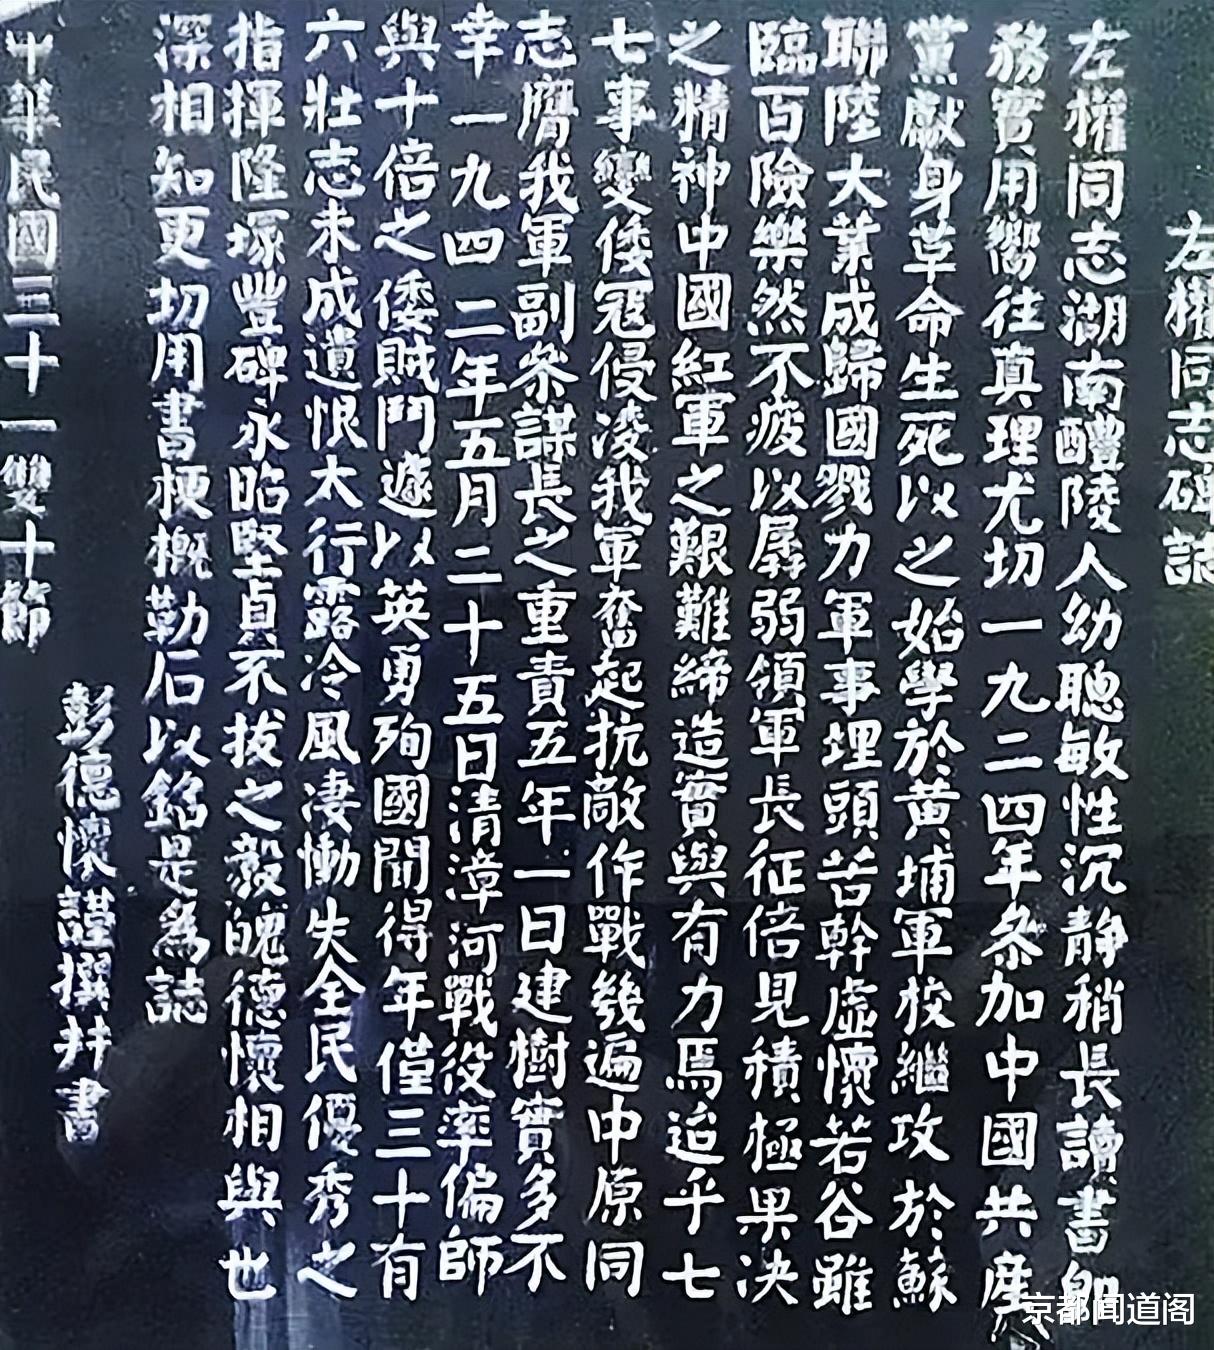 左權同志碑誌
左權同志湖南醴陵人幼聰敏性沉静稍長讀書即
務實用嚮往真理尤切一九二四年叅加中國共産
黨獻身革命生死以之始學於黄埔軍校繼攻於蘇
聯陸大業成歸國戮力軍事埋頭苦幹虛懷若谷雖
臨百險樂然不疲以孱弱領軍長征倍見積極果决
之精神中國紅軍之艱難締造實與有力焉迨乎七
七事變倭寇侵凌我軍奮起抗敵作戰幾遍中原同
志膺我軍副叅謀長之重責五年一日建樹實多不
幸一九四二年五月二十五日清漳河戰役率偏師
與十倍之倭賊鬥遽以英勇殉國聞得年僅三十有
六壯志未成遺恨太行露冷風凄慟失全民優秀之
指揮隆塚豐碑永昭堅貞不拔之毅魄德懷相與也
深相知更切用書梗概勒石以銘是爲誌
彭德懷謹撰并書
中華民國三十一雙十節
京都闻道阁